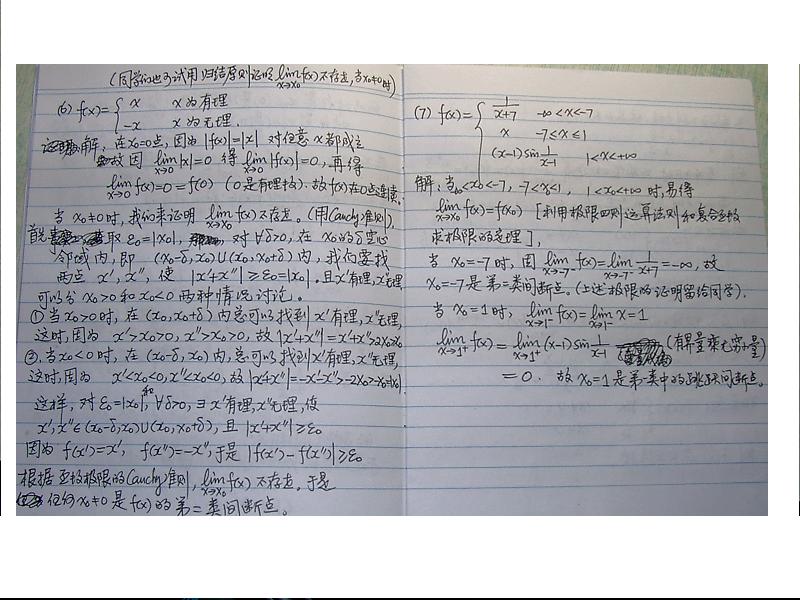 (同学们也可试用归结原则证明 lim_{x→x₀} f(x) 不存在,当x₀≠0时)
(6) f(x)={ x x为有理
-x x为无理.
解:在x₀=0点,因为 |f(x)|=|x| 对任意x都成立
故因 lim_{x→0}|x|=0 得 lim_{x→0}|f(x)|=0,再得
lim_{x→0} f(x)=0=f(0) (0是有理数).故f(x)在0点连续.
当 x₀≠0时,我们来证明 lim_{x→x₀} f(x)不存在。(用Cauchy准则),
首先 取 ε₀=|x₀|, 对∀δ>0,在 x₀的δ空心
邻域内,即 (x₀-δ,x₀)∪(x₀,x₀+δ)内,我们要找
两点 x′,x″,使 |x′+x″|≥ε₀=|x₀|.且x′有理,x″无理
可以分 x₀>0和x₀<0 两种情况讨论。
①当x₀>0时,在 (x₀,x₀+δ)内总可以找到x′有理,x″无理,
这时,因为 x′>x₀>0, x″>x₀>0,故|x′+x″|=x′+x″>2x₀>x₀
②当x₀<0时,在 (x₀-δ,x₀)内总可以找到x′有理,x″无理,
这时,因为 x′<x₀<0,x″<x₀<0,故|x′+x″|=-x′-x″>-2x₀>-x₀=|x₀|
这样,对ε₀=|x₀|和∀δ>0,∃x′有理,x″无理,使
x′,x″∈(x₀-δ,x₀)∪(x₀,x₀+δ),且 |x′+x″|≥ε₀
因为 f(x′)=x′, f(x″)=-x″,于是 |f(x′)-f(x″)|≥ε₀
根据函数极限的Cauchy准则,lim_{x→x₀} f(x)不存在.于是
任何x₀≠0是f(x)的第二类间断点。
(7) f(x)={ 1/(x+7) -∞<x<-7
x -7≤x≤1
(x-1)sin 1/(x-1) 1<x<+∞
解:当-∞<x₀<-7,-7<x₀<1, 1<x₀<+∞ 时,易得
lim_{x→x₀} f(x)=f(x₀) [利用极限四则运算法则和复合函数
求极限的定理],
当 x₀=-7时,因 lim_{x→-7⁻} f(x)=lim_{x→-7⁻} 1/(x+7)=-∞,故
x₀=-7是第二类间断点。(上述极限的证明留给同学).
当 x₀=1时, lim_{x→1⁻} f(x)=lim_{x→1⁻} x=1
lim_{x→1⁺} f(x)=lim_{x→1⁺}(x-1)sin 1/(x-1) (有界量乘无穷小量)
=0. 故 x₀=1是第一类中的跳跃间断点。